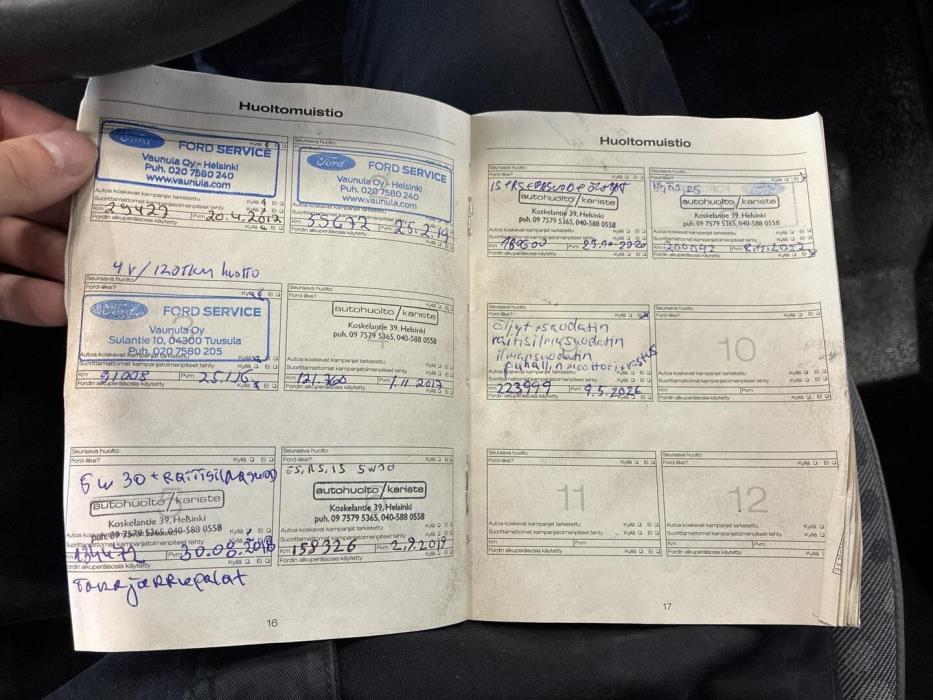 Huoltomuistio
Ford FORD SERVICE
Vaunula Oy - Helsinki
Puh. 020 7580 240
www.vaunula.com
Autoa koskevat kampanjat tarkistettu Kyllä Ei
Suorittamattomat kampanjatoimenpiteet tehty
Km 29427 Pvm 20.4.2012
Fordin alkuperäisosia käytetty Kyllä Ei
Ford FORD SERVICE
Vaunula Oy - Helsinki
Puh. 020 7580 240
www.vaunula.com
Autoa koskevat kampanjat tarkistettu
Suorittamattomat kampanjatoimenpiteet tehty
Km Pvm 25.2.14
Fordin alkuperäisosia käytetty Kyllä Ei
4v/120tkm huolto
Seuraava huolto
Ford FORD SERVICE
Vaunula Oy
Sulantie 10, 04300 Tuusula
Puh. 020 7580 205
Autoa koskevat kampanjat tarkistettu
Suorittamattomat kampanjatoimenpiteet tehty
Km 91008 Pvm
Fordin alkuperäisosia käytetty Kyllä Ei
Seuraava huolto
Ford-liike? Kyllä Ei
autohuolto/kariste
Koskelantie 39, Helsinki
puh. 09 7579 5365, 040-588 0558
Autoa koskevat kampanjat tarkistettu Kyllä Ei
Suorittamattomat kampanjatoimenpiteet tehty
Km 121360 Pvm 7.11.2017
Fordin alkuperäisosia käytetty Kyllä Ei
Seuraava huolto
Ford-liike? Kyllä Ei
5w30 +
autohuolto/kariste
Koskelantie 39, Helsinki
puh. 09 7579 5365, 040-588 0558
Autoa koskevat kampanjat tarkistettu Kyllä Ei
Suorittamattomat kampanjatoimenpiteet tehty
Km 134477 Pvm 30.08.2018
Fordin alkuperäisosia käytetty Kyllä Ei
Takajarrupalat
Seuraava huolto
Ford-liike? Kyllä Ei
5w30
autohuolto/kariste
Koskelantie 39, Helsinki
puh. 09 7579 5365, 040-588 0558
Autoa koskevat kampanjat tarkistettu Kyllä Ei
Suorittamattomat kampanjatoimenpiteet tehty
Km 158326 Pvm 2.9.2019
Fordin alkuperäisosia käytetty Kyllä Ei
16
Huoltomuistio
Seuraava huolto
Ford-liike? Kyllä Ei
autohuolto/kariste
Koskelantie 39, Helsinki
puh. 09 7579 5365, 040-588 0558
Autoa koskevat kampanjat tarkistettu Kyllä Ei
Suorittamattomat kampanjatoimenpiteet tehty
Km 189500 Pvm 29.10.2020
Fordin alkuperäisosia käytetty Kyllä Ei
Seuraava huolto
Ford-liike? Kyllä Ei
autohuolto/kariste
Koskelantie 39, Helsinki
puh. 09 7579 5365, 040-588 0558
Autoa koskevat kampanjat tarkistettu Kyllä Ei
Suorittamattomat kampanjatoimenpiteet tehty
Km Pvm
Fordin alkuperäisosia käytetty Kyllä Ei
Seuraava huolto
Ford-liike? Kyllä Ei
öljyt + suodatin
raitisilmasuodatin
ilmansuodatin
puhallinmoottori
Autoa koskevat kampanjat tarkistettu Kyllä Ei
Suorittamattomat kampanjatoimenpiteet tehty
Km 223999 Pvm 9.5.2026
Fordin alkuperäisosia käytetty Kyllä Ei
Seuraava huolto
Ford-liike? Kyllä Ei
10
Autoa koskevat kampanjat tarkistettu Kyllä Ei
Suorittamattomat kampanjatoimenpiteet tehty
Km Pvm
Fordin alkuperäisosia käytetty Kyllä Ei
Seuraava huolto
Ford-liike? Kyllä Ei
11
Autoa koskevat kampanjat tarkistettu Kyllä Ei
Suorittamattomat kampanjatoimenpiteet tehty
Km Pvm
Fordin alkuperäisosia käytetty Kyllä Ei
Seuraava huolto
Ford-liike? Kyllä Ei
12
Autoa koskevat kampanjat tarkistettu Kyllä Ei
Suorittamattomat kampanjatoimenpiteet tehty
Km Pvm
Fordin alkuperäisosia käytetty Kyllä Ei
17